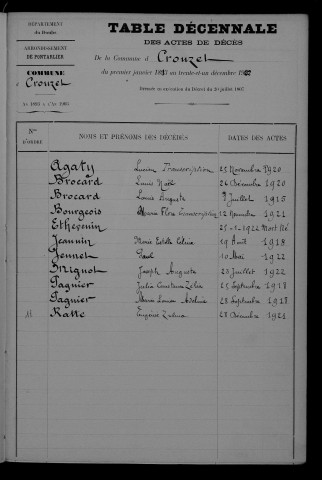 DÉPARTEMENT
du Doubs
ARRONDISSEMENT
DE PONTARLIER
COMMUNE
d Crouzet
TABLE DÉCENNALE
DES ACTES DE DÉCÈS
De la Commune d Crouzet
du premier janvier au trente-et-un décembre
Dressée en exécution du Décret du 20 juillet 1807
Nos D'ORDRE
NOMS ET PRÉNOMS DES DÉCÉDÉS
DATES DES ACTES
Agaty Lucien Transcription 25 Novembre 1920
Brocard Louis Noël 26 Décembre 1920
Brocard Louis Auguste Juillet 1915
Bourgeois Flore transcription 12 1921
Ethevenin 25 - 1922 Mort Né
Jeannin Marie Estelle Célina 19 Août 1918
Jennet Paul 10 Mai 1922
Joseph Auguste 23 Juillet 1922
Pagnier Julia Constance Zélia 25 Septembre 1918
Pagnier Marie Louise Adeline 28 Septembre 1918
11 Ratte Eugénie Zelma 28 Décembre 1921